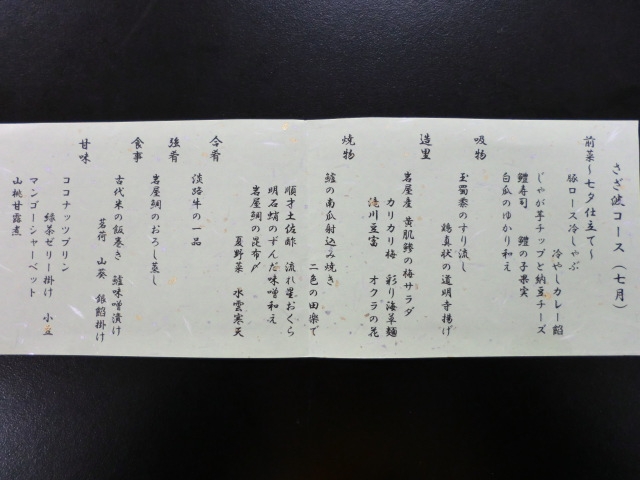 さざ波コース（七月）
前菜～七夕仕立て～
豚ロース冷しゃぶ
冷やしカレー餡
じゃが芋チップと納豆チーズ
鱧寿司　鱧の子果実
白瓜のゆかり和え
吸物
玉蜀黍のすり流し
鶏真状の道明寺揚げ
造里
岩屋産　黄肌鯵の梅サラダ
カリカリ梅　彩り海草麺
滝川豆富　オクラの花
焼物
鱸の南瓜射込み焼き
二色の田楽で
順才土佐酢　流れ星おくら
明石蛸のずんだ味噌和え
岩屋鯛の昆布〆
夏野菜　水雲寒天
合肴
淡路牛の一品
強肴
岩屋鯛のおろし蒸し
食事
古代米の飯巻き　鱸味噌漬け
茗荷　山葵　銀餡掛け
甘味
ココナッツプリン
緑茶ゼリー掛け　小豆
マンゴーシャーベット
山桃甘露煮